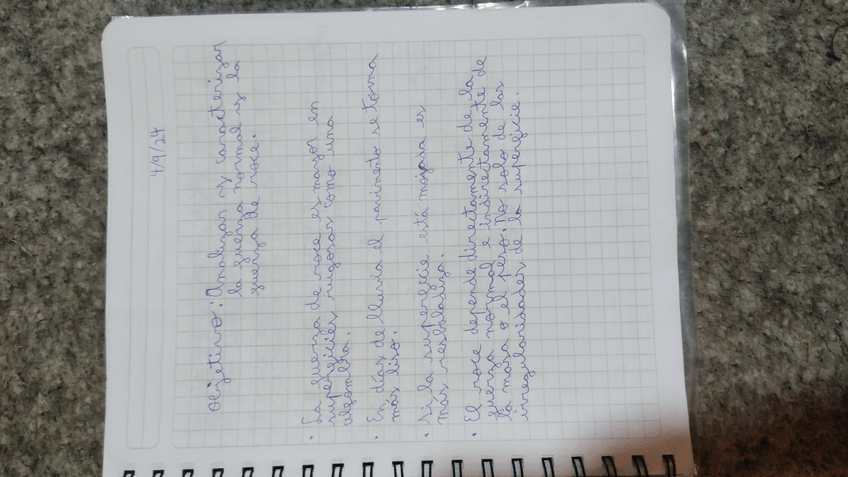 4/9/24
Objetivo: Analizar y caracterizar
la fuerza normal y la
fuerza de roce.
• La fuerza de roce es mayor en
superficies rugosas como una
alfombra.
• En días de lluvia el pavimento se torna
más liso.
• Si la superficie está mojada es
mas resbaladiza.
• El roce depende directamente de la
fuerza normal e indirectamente de
la masa o el peso. No solo de las
irregularidades de la superficie.